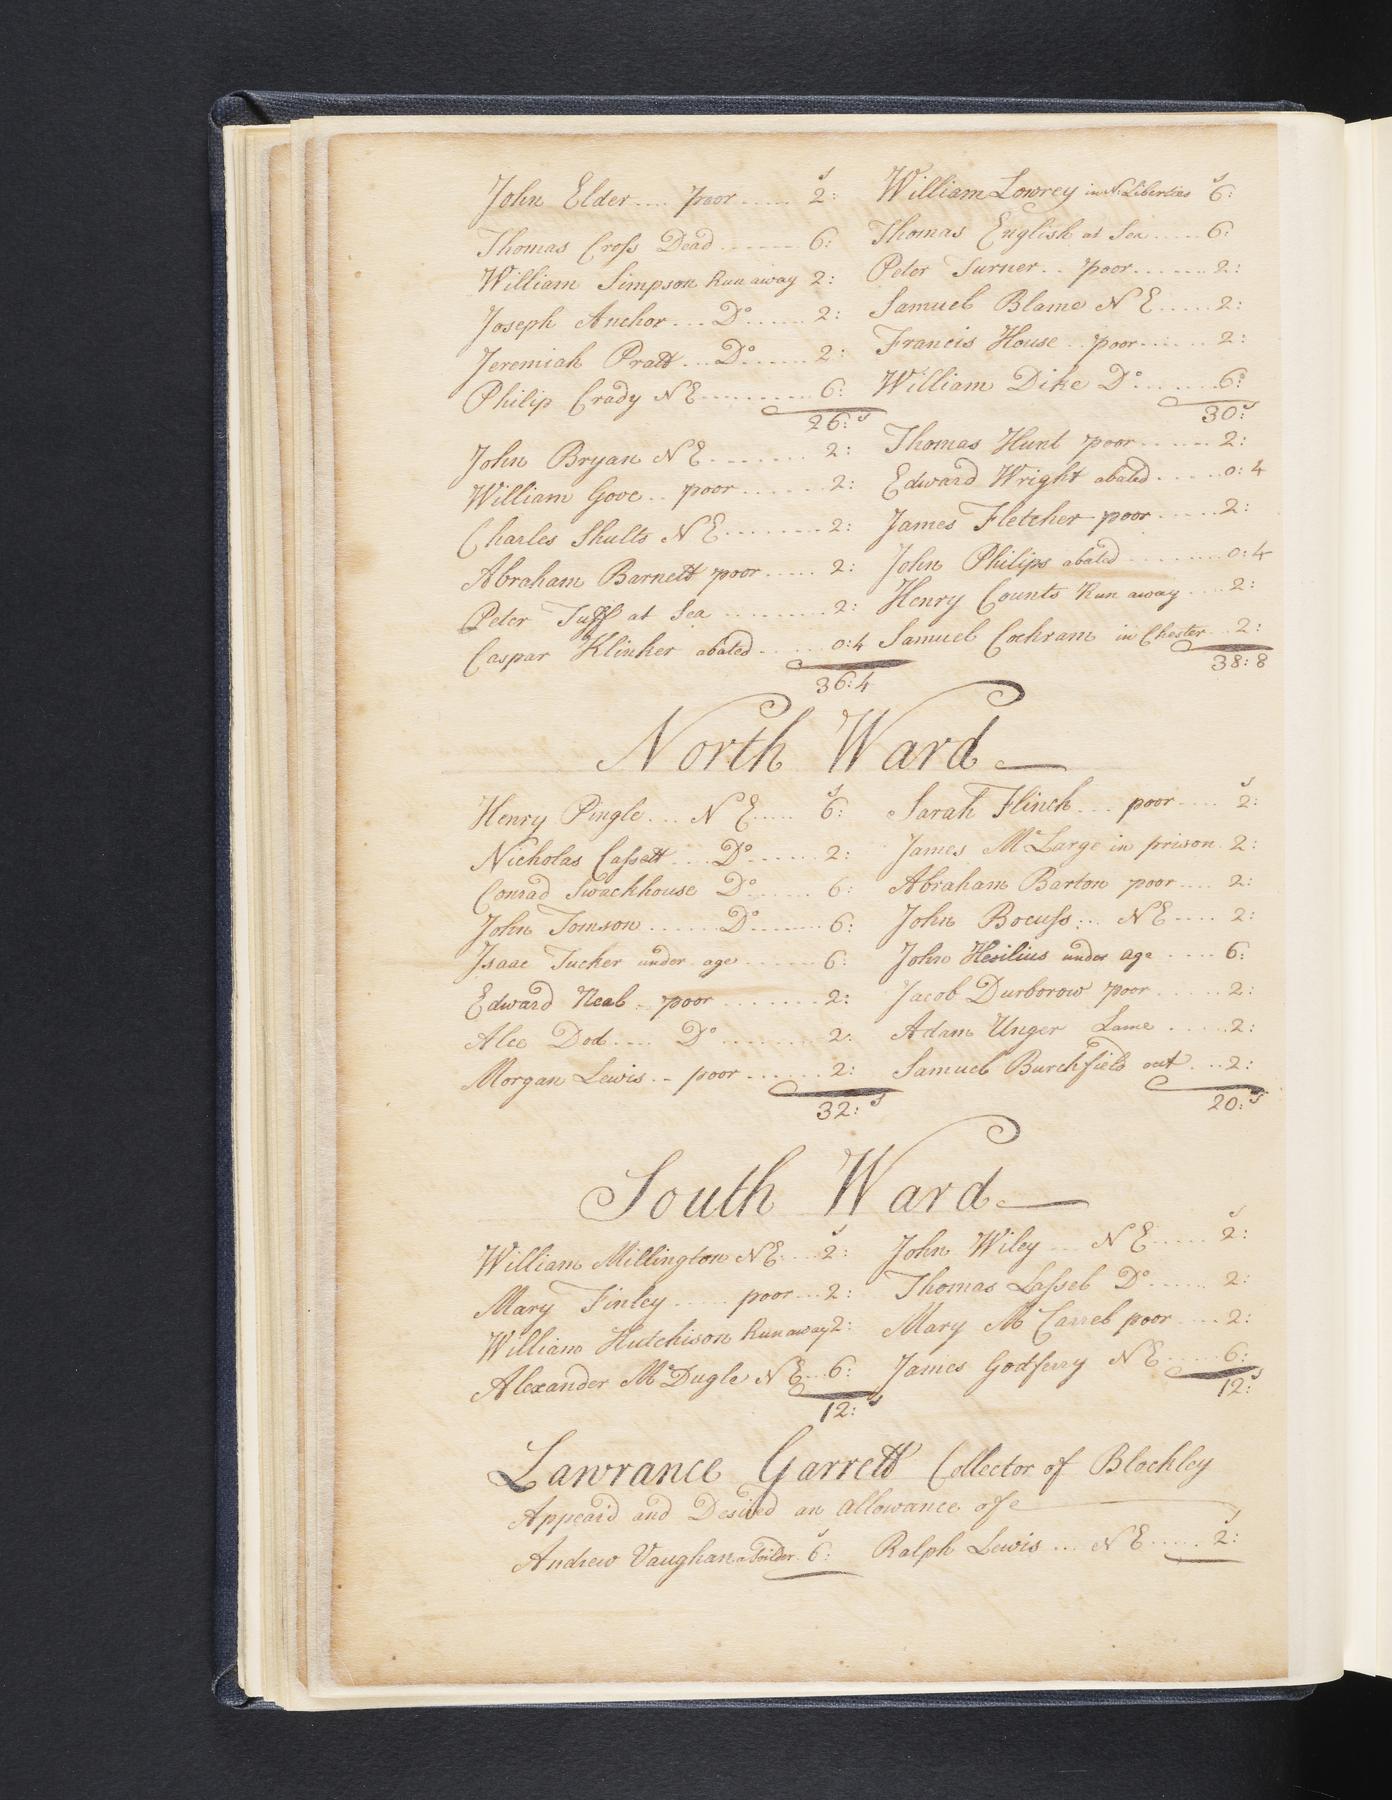 s
John Elder .... poor ..... 2:
Thomas Cross Dead ....... 6:
William Simpson Run away 2:
Joseph Anchor ... Do ...... 2:
Jeremiah Pratt ... Do ...... 2:
Philip Crady N E .......... 6:
26: s
John Bryan N E ........ 2:
William Gove .. poor ....... 2:
Charles Shults N E ........ 2:
Abraham Barnett poor ..... 2:
Peter Tuff at Sea .......... 2:
Caspar Klinker abated ...... 0:4
36:4
s
William Lowrey in N. Liberties 6:
Thomas English at Sea ..... 6:
Peter Turner .. poor ....... 2:
Samuel Blame N E ..... 2:
Francis House .. poor ...... 2:
William Dike Do ....... 6:
30: s
Thomas Hunt poor ...... 2:
Edward Wright abated ..... 0:4
James Fletcher poor ..... 2:
John Philips abated ........ 0:4
Henry Counts Run away .... 2:
Samuel Cochram in Chester .. 2:
38:8
North Ward
s
Henry Pingle ... N E ..... 6:
Nicholas Cassett ... Do ...... 2:
Conrad Swackhouse Do ...... 6:
John Tomson ...... Do ...... 6:
Isaac Tucker under age ...... 6:
Edward Neal .. poor ........ 2:
Alce Dod .... Do ........ 2:
Morgan Lewis .. poor ...... 2:
32: s
s
Sarah Flinch ... poor .... 2:
James McLarge in prison . 2:
Abraham Barton poor .... 2:
John Bocuss ... N E .... 2:
John Hesilius under age .... 6:
Jacob Durborow poor ..... 2:
Adam Unger Lame ..... 2:
Samuel Burchfield out ... 2:
20: s
South Ward
s
William Millington N E ... 2:
Mary Finley ..... poor ... 2:
William Hutchison Run away 2:
Alexander McDugle N E .. 6:
12: s
s
John Wiley ... N E ..... 2:
Thomas Lassel Do ...... 2:
Mary Mc Carrel poor .... 2:
James Godferry N E ..... 6:
12: s
Lawrance Garrett Collector of Blockley
Appeard and Desired an allowance of
s
Andrew Vaughan 6:
s
Ralph Lewis ... N E ..... 2: